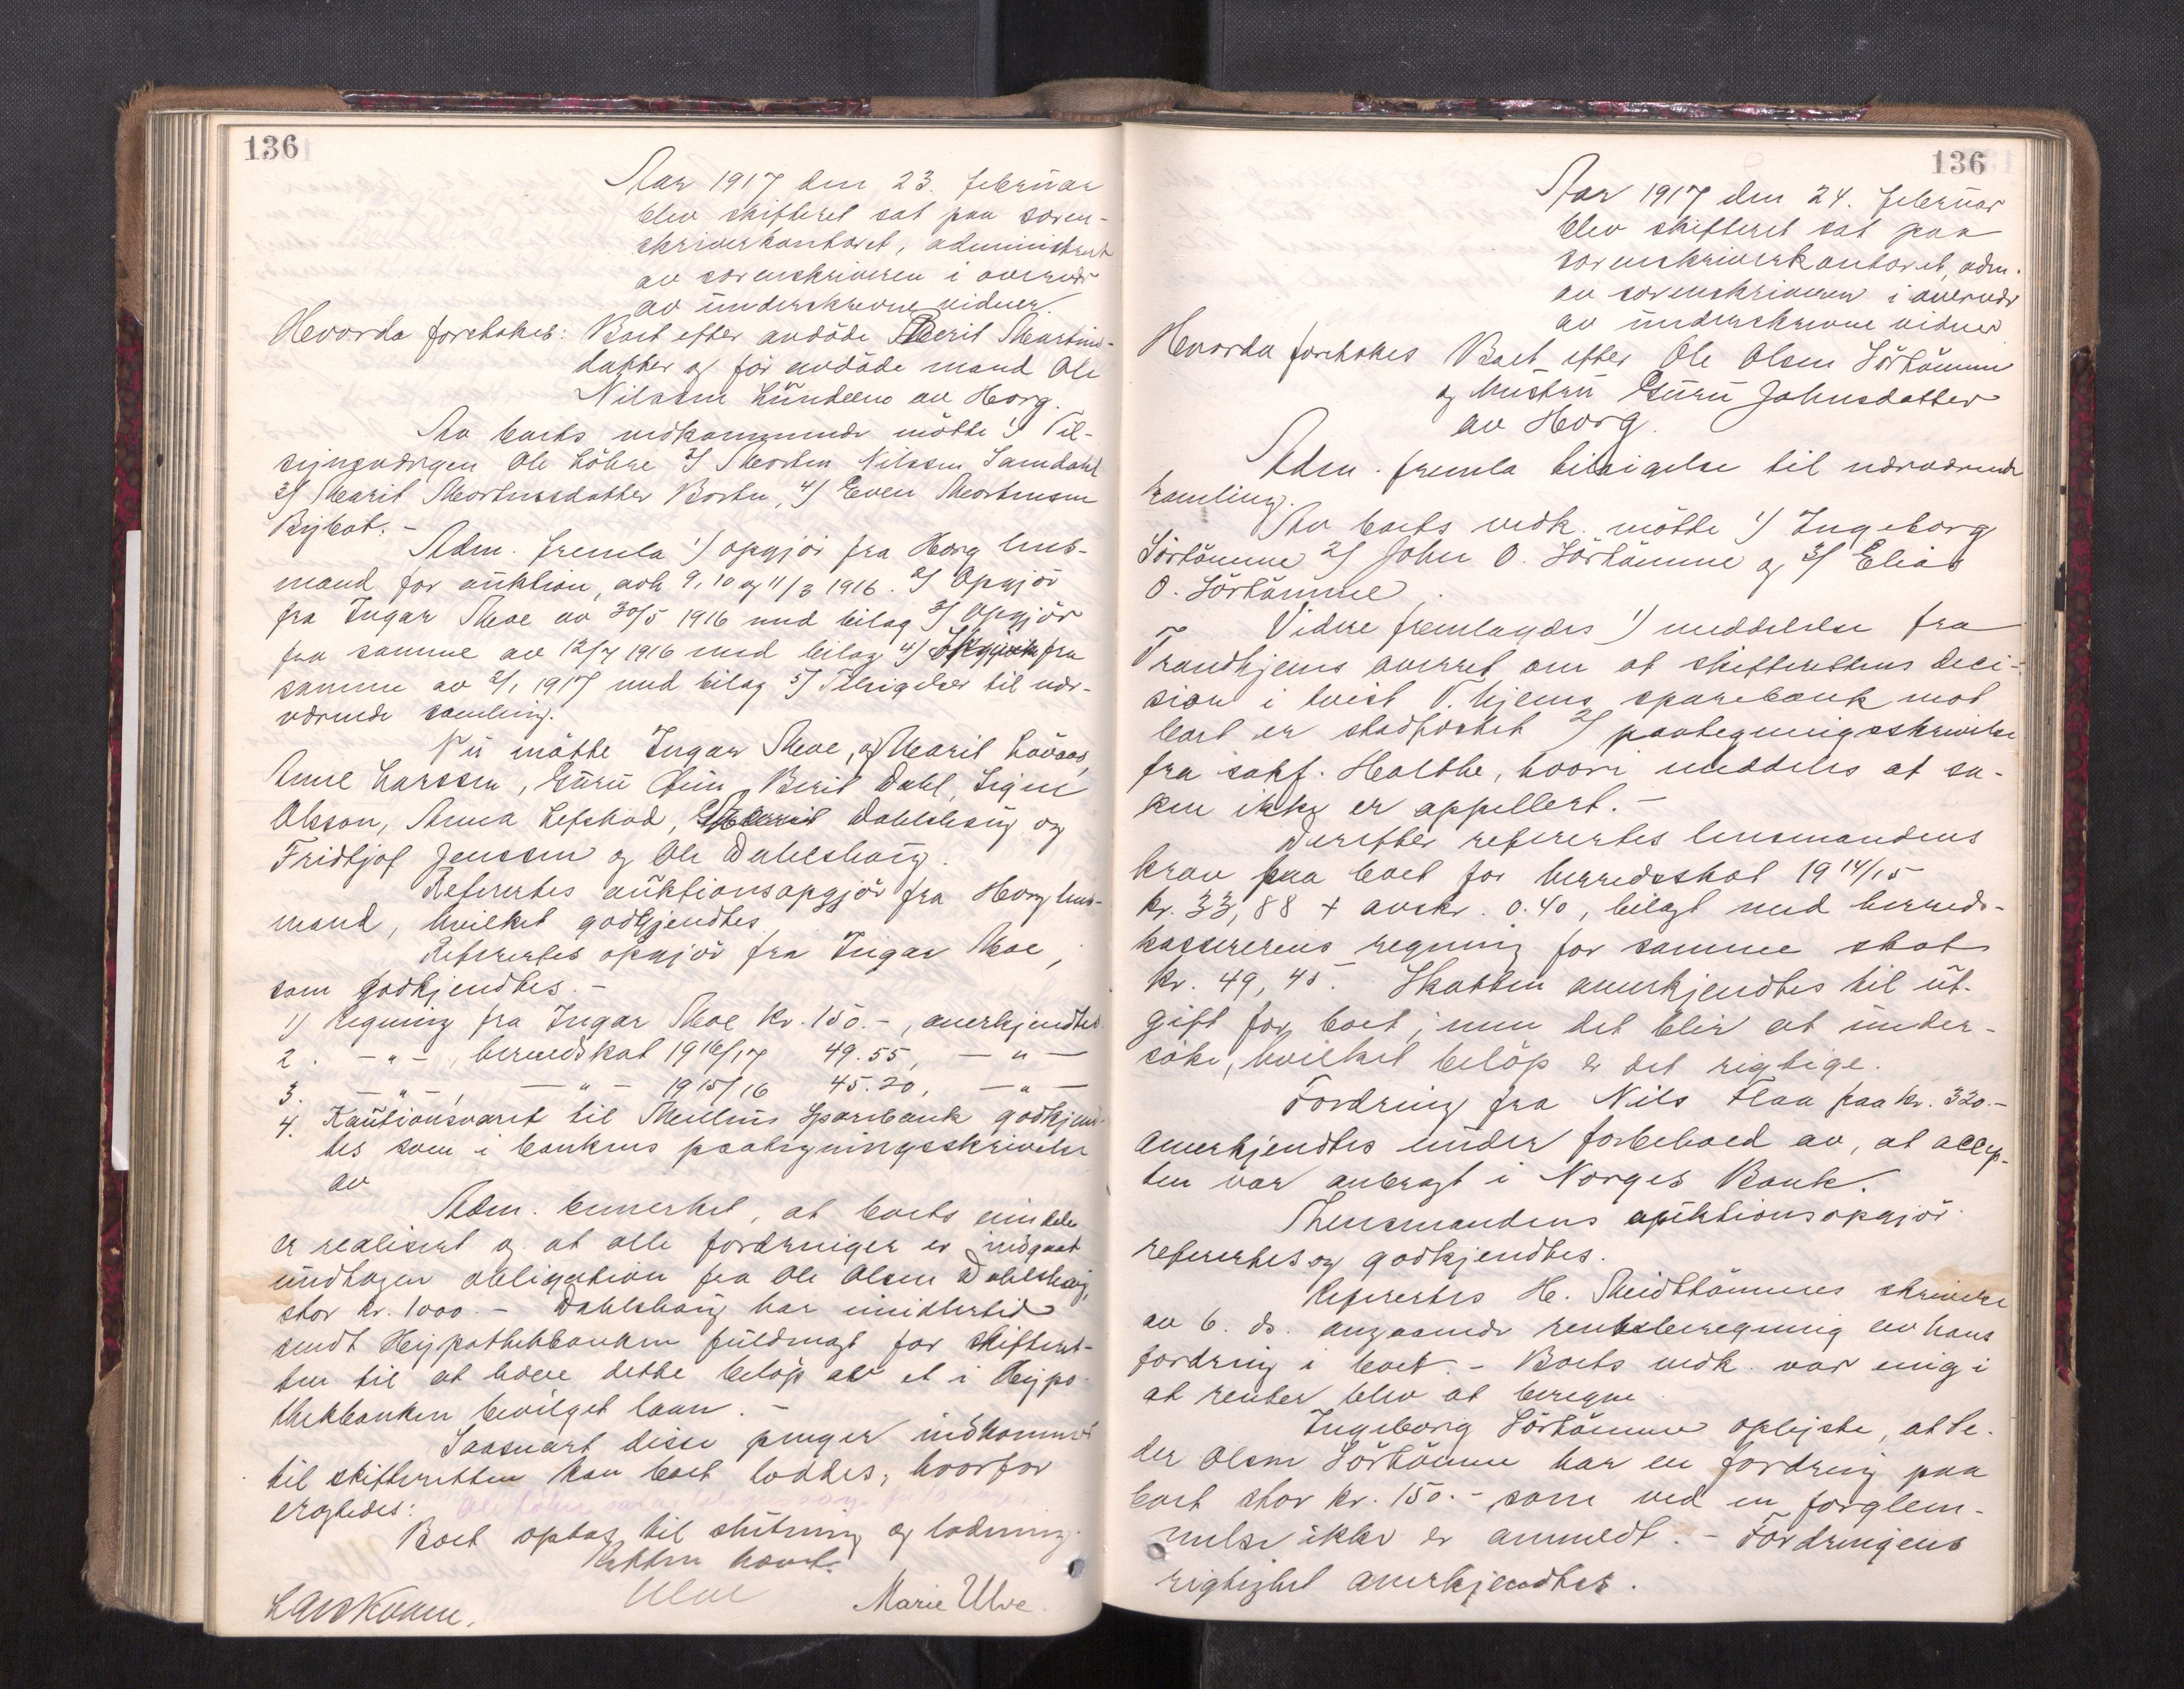 136
Aar 1917 den 23. februar
blev skifteret sat paa soren-
skriverkontoret, administrert
av sorenskriveren i overvær
av underskrevne vidner.
Hvorda foretokes: Boet efter avdöde Berit Martins-
datter og för avdöde mand Ole
Nilssen Lundemo av Horg.
Av boets vedkommende mötte 1) Til-
synsværgen Ole Löhre 2) Morten Nilssen Samdahl
3) Marit Mortensdatter Borten, 4) Even Mortensen
Bybot. -
Adm. fremla 1) opgjör fra Horg lens-
mand for auktion, avh. 9, 10 og 11/3 1916. 2) Opgjör
fra Ingar Moe av 30/5 1916 med bilag 3) Opgjör
fra samme av 12/7 1916 med bilag 4) fra
samme av 2/1 1917 med bilag 5) Tilsigelser til nær-
værende samling.
Nu mötte Ingar Moe, og Marit Lövaas,
Anne Larssen, Guru Berit Dahl, Signe
Olsson, Anna Dahlshaug og
Fridtjof Jenssen og Ole Dahlshaug.
Refertes auktionsopgjör fra Horg lens-
mand, hvilket godkjendtes.
Refertes opgjör fra Ingar Moe,
som godkjendtes. -
1) Regning fra Ingar Moe kr. 150.-, anerkjendtes.
2. -"-, herredskat 1916/17 49.55, -"-
3. -"-, -"- 1915/16 45.20, -"-
4. Kautionsvaret til Melhus Sparebank godkjend-
tes som i bankens paategningsskrivelse
av
Adm. bemerket, at boets eiendele
er realisert og at alle fordringer er indgaat
undtagen obligation fra Ole Olsen Dahlshaug,
stor kr. 1000.- Dahlshaug har imidlertid
sendt Hypothekbanken fuldmagt for skifteret-
ten til at hæve dette belöp av et i Hypo-
thekbanken bevilget laan. -
Saasnart disse penger indkommer
til skifteretten kan boet loddes, hvorfor
eragtedes:
Boet optas til slutning og lodning.
Retten hævet.
Ulve Marie Ulve.
Lars Kvam.
136
Aar 1917 den 24. februar
blev skifteret sat paa
sorenskriverkontoret, adm.
av sorenskriveren i overvær
av underskrevne vidner
Hvorda foretokes Boet efter Ole Olsen Sörtömme
og hustru Guru Johnsdatter
av Horg.
Adm. fremla tilsigelse til nærværende
samling.
Av boets vedk. mötte 1) Ingeborg
Sörtömme 2) John O. Sörtömme og 3) Elias
O. Sörtömme.
Videre fremlagdes 1) meddelelse fra
Trondhjems overret om at skifterettens deci-
sion i tvist T.hjems sparebank mot
boet er stadfæstet 2) paategningsskrivelse
fra sakf. Holthe, hvori meddeles at sa-
ken ikke er appellert. -
Derefter refertes lensmandens
krav paa boet for herredsskat 1914/15
kr. 33,88 + avskr. 0.40, bilagt med herreds-
kassererens regning for samme skat
kr. 49,45. Skatten anerkjendtes til ut-
gift for boet; men det blir at under-
söke, hvilket belöp er det rigtige.
Fordring fra Nils Flaa paa kr. 320.-
anerkjendtes under forbehold av, at accep-
ten var anbragt i Norges Bank.
Lensmandens auktionsopgjör
refertes og godkjendtes.
Refertes H. Midttömmes skrivelse
av 6. ds. angaaende renteberegning av hans
fordring i boet. - Boets vedk. var enig i
at renter blev at beregne
Ingeborg Sörtömme oplyste, at Pe-
der Olsen Sörtömme har en fordring paa
boet stor kr. 150.- som ved en forglem-
melse ikke er anmeldt. - Fordringens
rigtighet anerkjendtes.